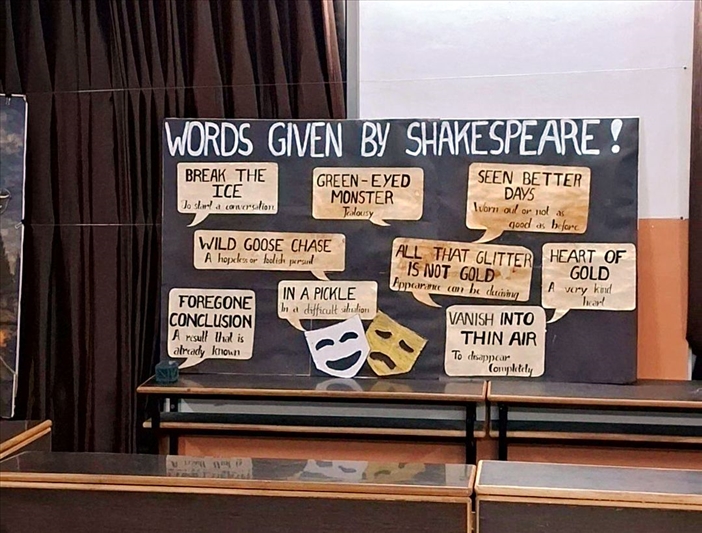 WORDS GIVEN BY SHAKESPEARE!
BREAK THE
ICE
To start a conversation
GREEN-EYED
MONSTER
Jealousy
SEEN BETTER
DAYS
Worn out or not as
good as before
WILD GOOSE CHASE
A hopeless or foolish persuit
ALL THAT GLITTER
IS NOT GOLD
Appearance can be decieving
HEART OF
GOLD
A very kind
heart
FOREGONE
CONCLUSION
A result that is
already known
IN A PICKLE
In a difficult situation
VANISH INTO
THIN AIR
To disappear
Completely